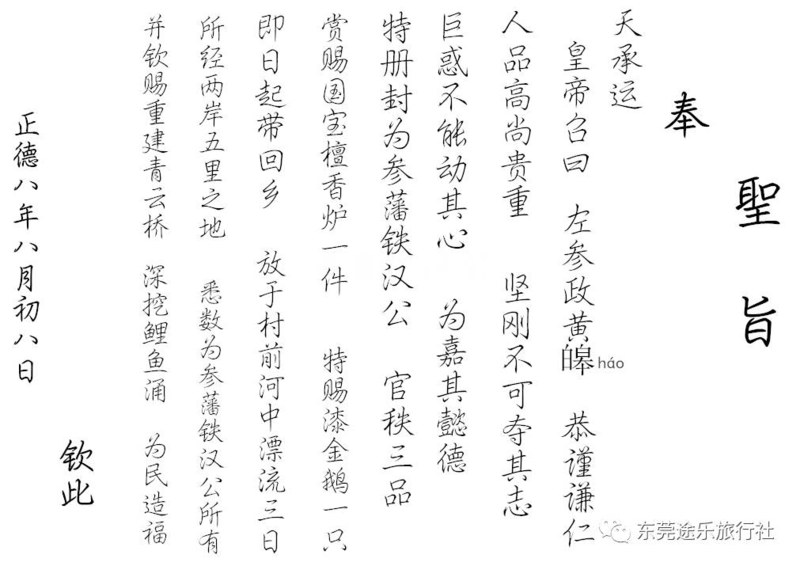 聖旨
奉
天承运
皇帝召曰 左参政黄皞háo 恭谨谦仁
人品高尚贵重 坚刚不可夺其志
巨惑不能动其心 为嘉其懿德
特册封为参藩铁汉公 官秩三品
赏赐国宝檀香炉一件 特赐漆金鹅一只
即日起带回乡 放于村前河中漂流三日
所经两岸五里之地 悉数为参藩铁汉公所有
并钦赐重建青云桥 深挖鲤鱼涌 为民造福
钦此
正德八年八月初八日
东莞途乐旅行社